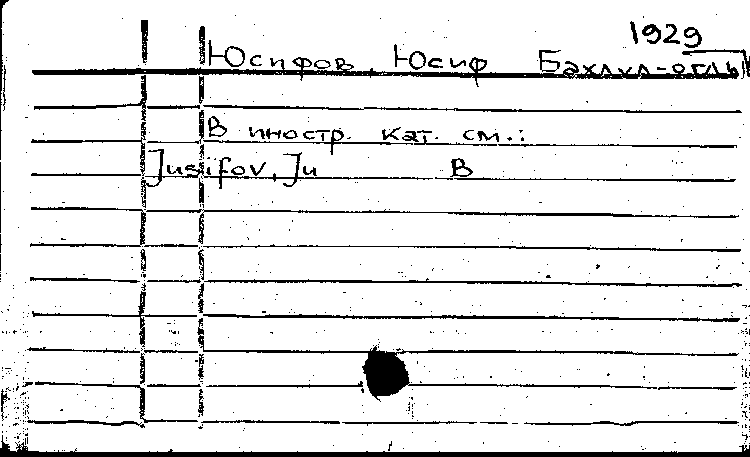 1929
Юсифов, Юсиф Бахлул-оглы
В иностр. кат. см.:
Jusifov, Ju B